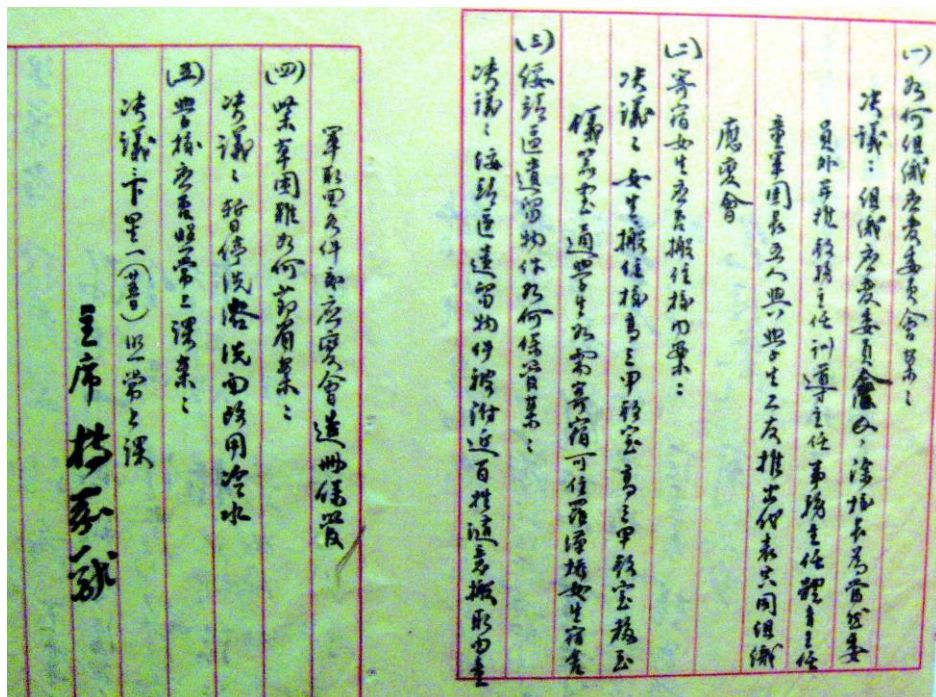 (一) 如何组織应变委員會案:
决議:组織应变委員會,除校長為當然委
員外并推教務主任訓導主任事務主任體育主任
童軍團長五人與學生工友推出代表共同组織
應变會
(二) 寄宿女生应否搬住校内案:
决議:女生搬住校高三甲教室高三甲教室移至
儀器室通學生如需寄宿可住羅漢橋女生宿舍
(三) 绥靖區遺留物件如何保管案:
决議:绥靖區遺留物件被附近百姓隨意搬取由童
軍取回各件郵应变會造册保管
(四) 柴草困難如何節省案:
决議:暫停洗浴洗面改用冷水
(五) 學校应否照常上課案:
决議:下星一(廿五日)照常上課
主席